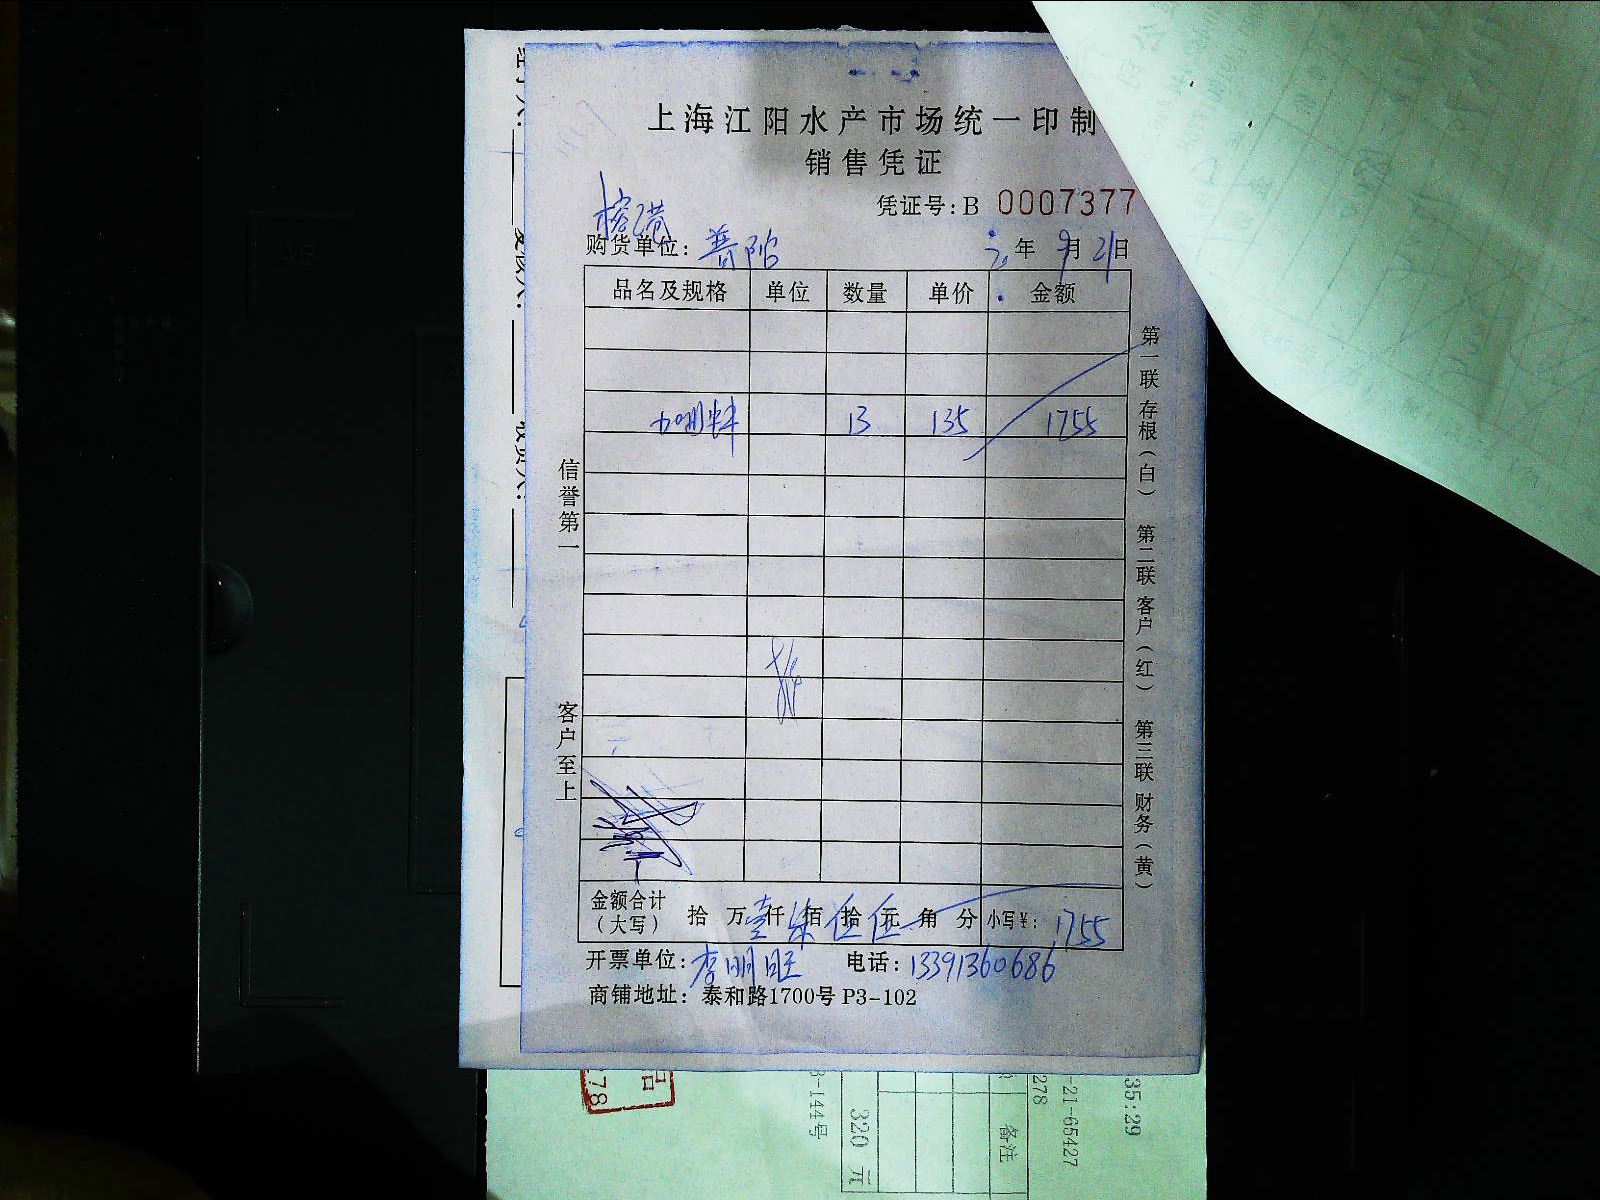 上海江阳水产市场统一印制
销售凭证
凭证号:B 0007377
榕港
购货单位: 普陀 年 9月21日
品名及规格 单位 数量 单价 金额
13 135 1755
信誉第一
客户至上
第一联 存根(白) 第二联 客户(红) 第三联 财务(黄)
金额合计(大写) 拾 万壹仟柒佰伍拾伍元 角 分 小写¥: 1755
开票单位: 李明旺 电话: 13391360686
商铺地址: 泰和路1700号 P3-102
278
3-144号
320 元
备注
278
-21-65427
35:29